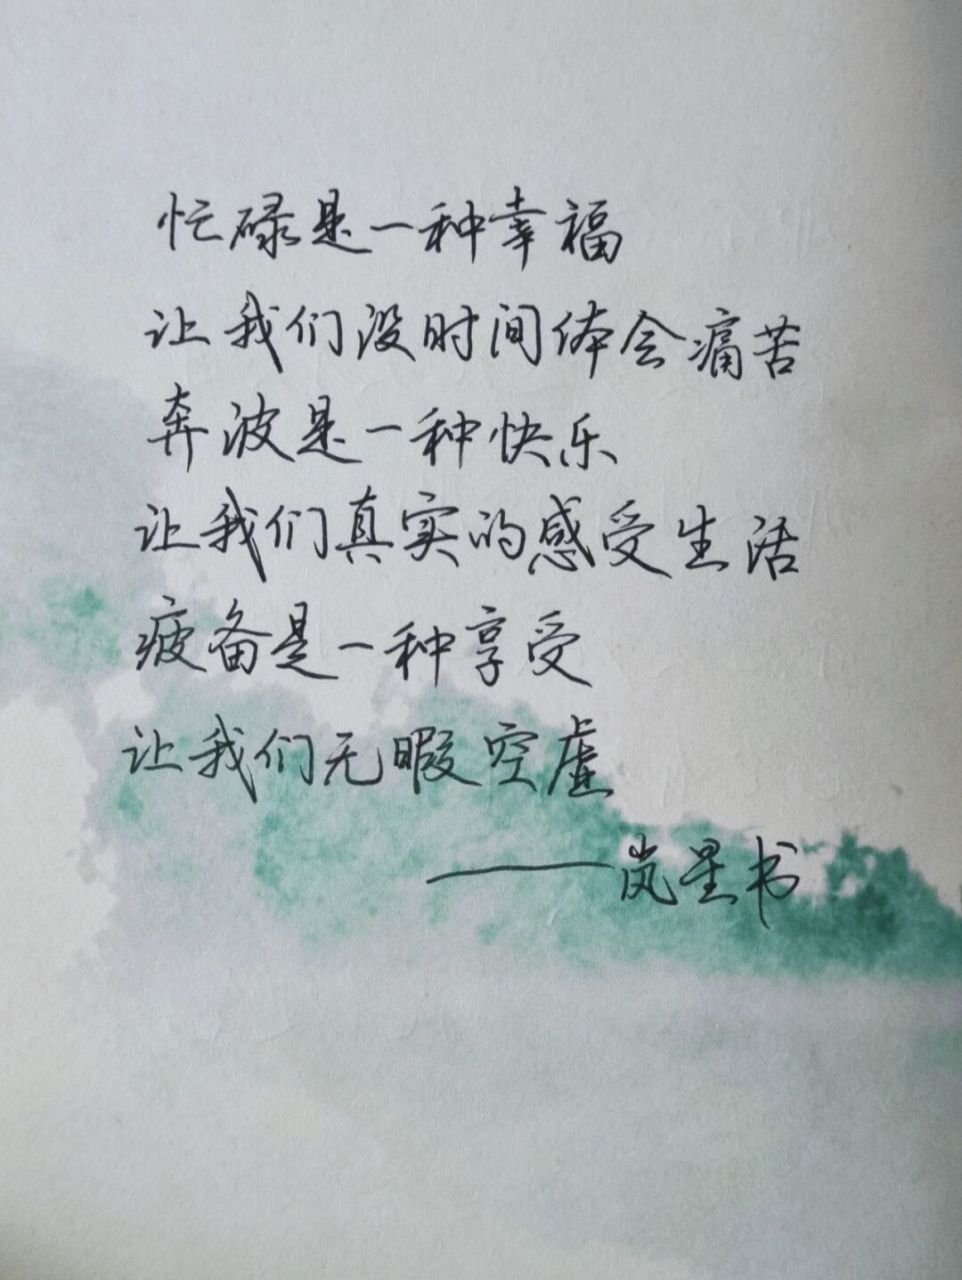 忙碌是一种幸福
让我们没时间体会痛苦
奔波是一种快乐
让我们真实的感受生活
疲备是一种享受
让我们无暇空虚
——岚星书